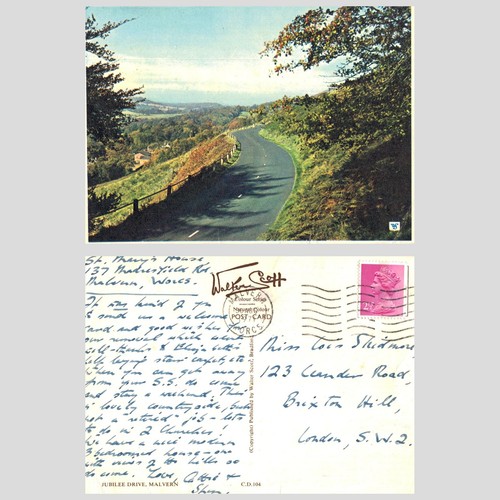 St. Mary's House,
137 Madresfield Rd
Malvern, Worcs.
It was kind of you
to send us a welcome
card and good wishes
our removal which went
well
help
when you can get away
from your S.S. do come
and stay a weekend. This
lovely countryside, but
not a "retired" job - lots
to do in 2 Churches.
We have a nice modern
3 bedroomed house - one
with views of the hills so
do come. Love,
JUBILEE DRIVE, MALVERN C.D.104
Walter Scott
Colour Series
POST CARD
MALVERN
WORCS.
(Copyright) Published by Walter Scott,
2½
Miss Lois Skidmore
123 Leander Road,
Brixton Hill,
London, S.W.2.